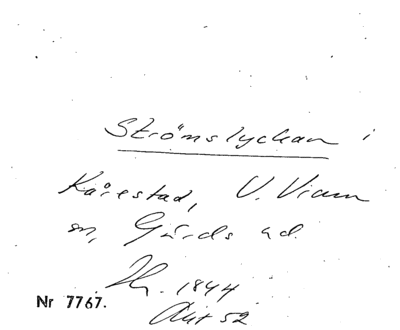 Strömslyckan i
Kårestad, V. Vram
sn, Gärds hd.
Th. 1844
Akt 52
Nr 7767.